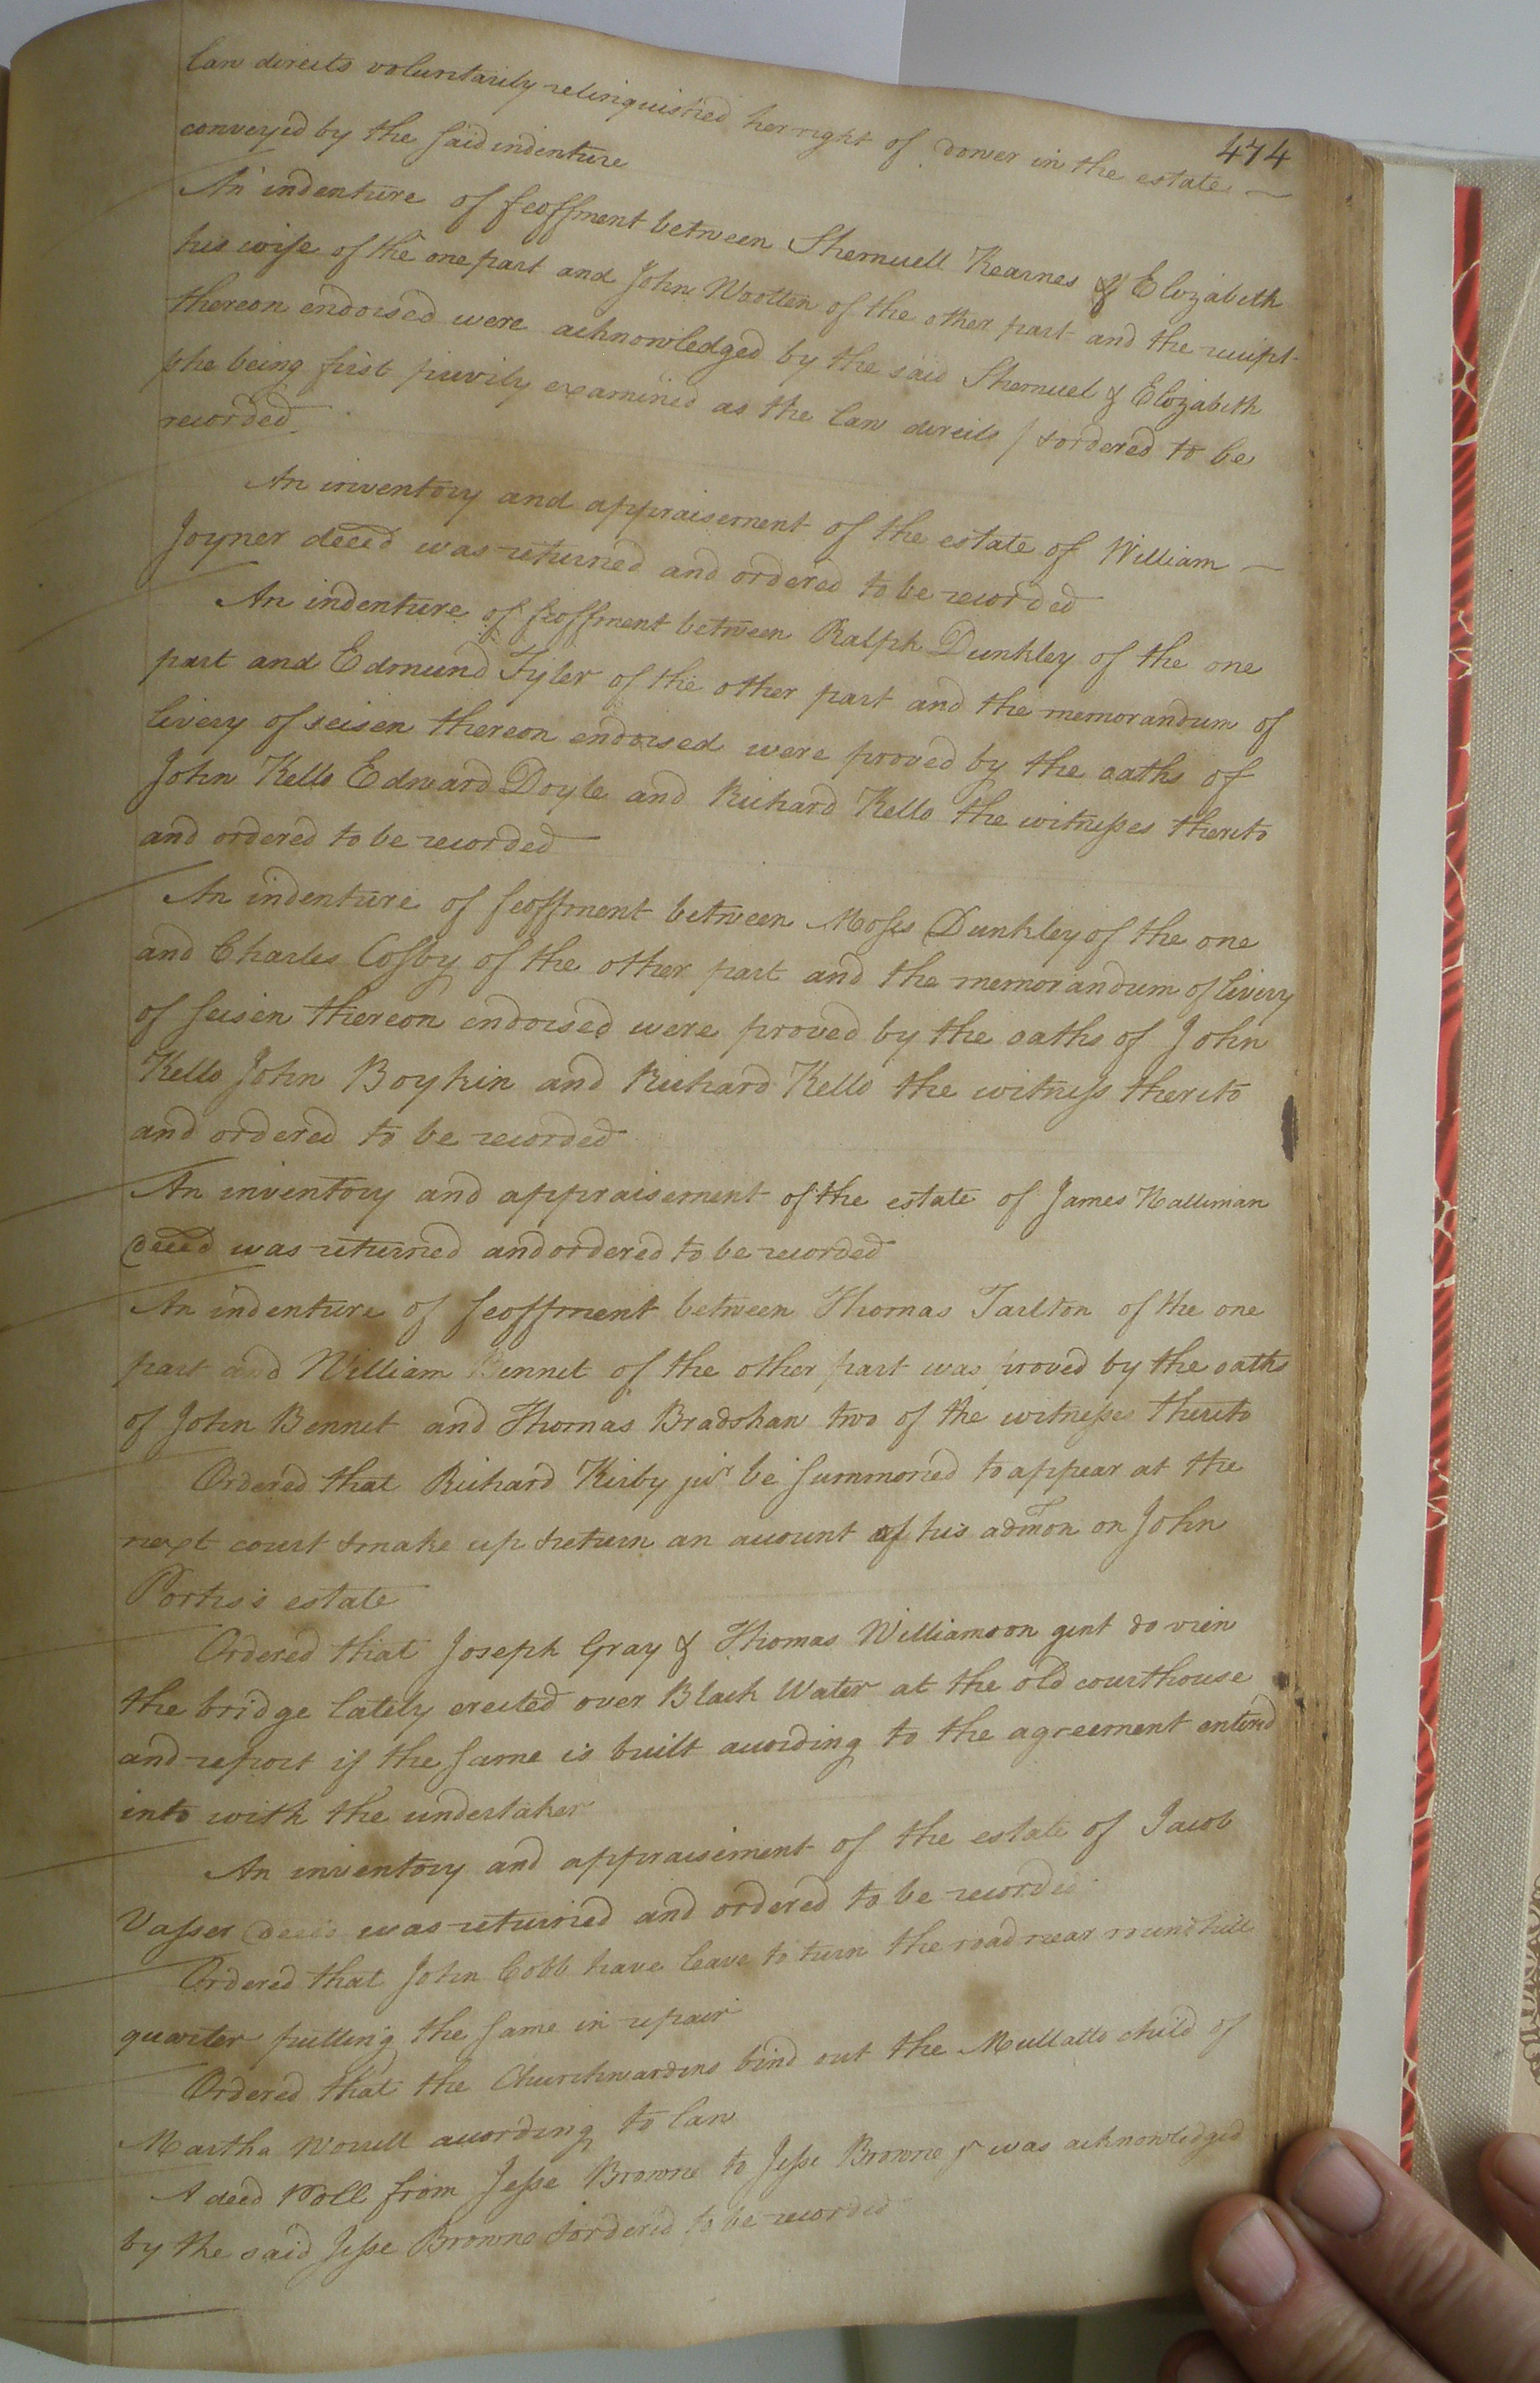 474
law directs voluntarily relinquished her right of dower in the estate
conveyed by the said indenture
An indenture of feoffment between Shemuell Kearnes & Elizabeth
his wife of the one part and John Wootten of the other part and the receipt
thereon endorsed were acknowledged by the said Shemuel & Elizabeth
she being first privily examined as the law directs / & ordered to be
recorded.
An inventory and appraisement of the estate of William
Joyner deced was returned and ordered to be recorded
An indenture of feoffment between Ralph Dunkley of the one
part and Edmund Tyler of the other part and the memorandum of
livery of seisen thereon endorsed were proved by the oaths of
John Kello Edward Doyle and Richard Kello the witnesses thereto
and ordered to be recorded
An indenture of feoffment between Moses Dunkley of the one
and Charles Cosby of the other part and the memorandum of livery
of seisen thereon endorsed were proved by the oaths of John
Kello John Boykin and Richard Kello the witness thereto
and ordered to be recorded
An inventory and appraisement of the estate of James
decd was returned and ordered to be recorded
An indenture of feoffment between Thomas Tarlton of the one
part and William Bennet of the other part was proved by the oaths
of John Bennet and Thomas Bradshaw two of the witnesses thereto
Ordered that Richard Kirby junr be summoned to appear at the
next court & make up & return an account of his admon on John
Portis's estate
Ordered that Joseph Gray & Thomas Williamson gent do view
the bridge lately erected over Black Water at the old courthouse
and report if the same is built according to the agreement entered
into with the undertaker
An inventory and appraisement of the estate of Jacob
Vasser decd was returned and ordered to be recorded
Ordered that John Cobb have leave to turn the road near round hill
quarter putting the same in repair
Ordered that the Churchwardens bind out the Mullatto child of
Martha Worrell according to law
A deed Poll from Jesse Browne to Jesse Browne jr was acknowledged
by the said Jesse Browne & ordered to be recorded